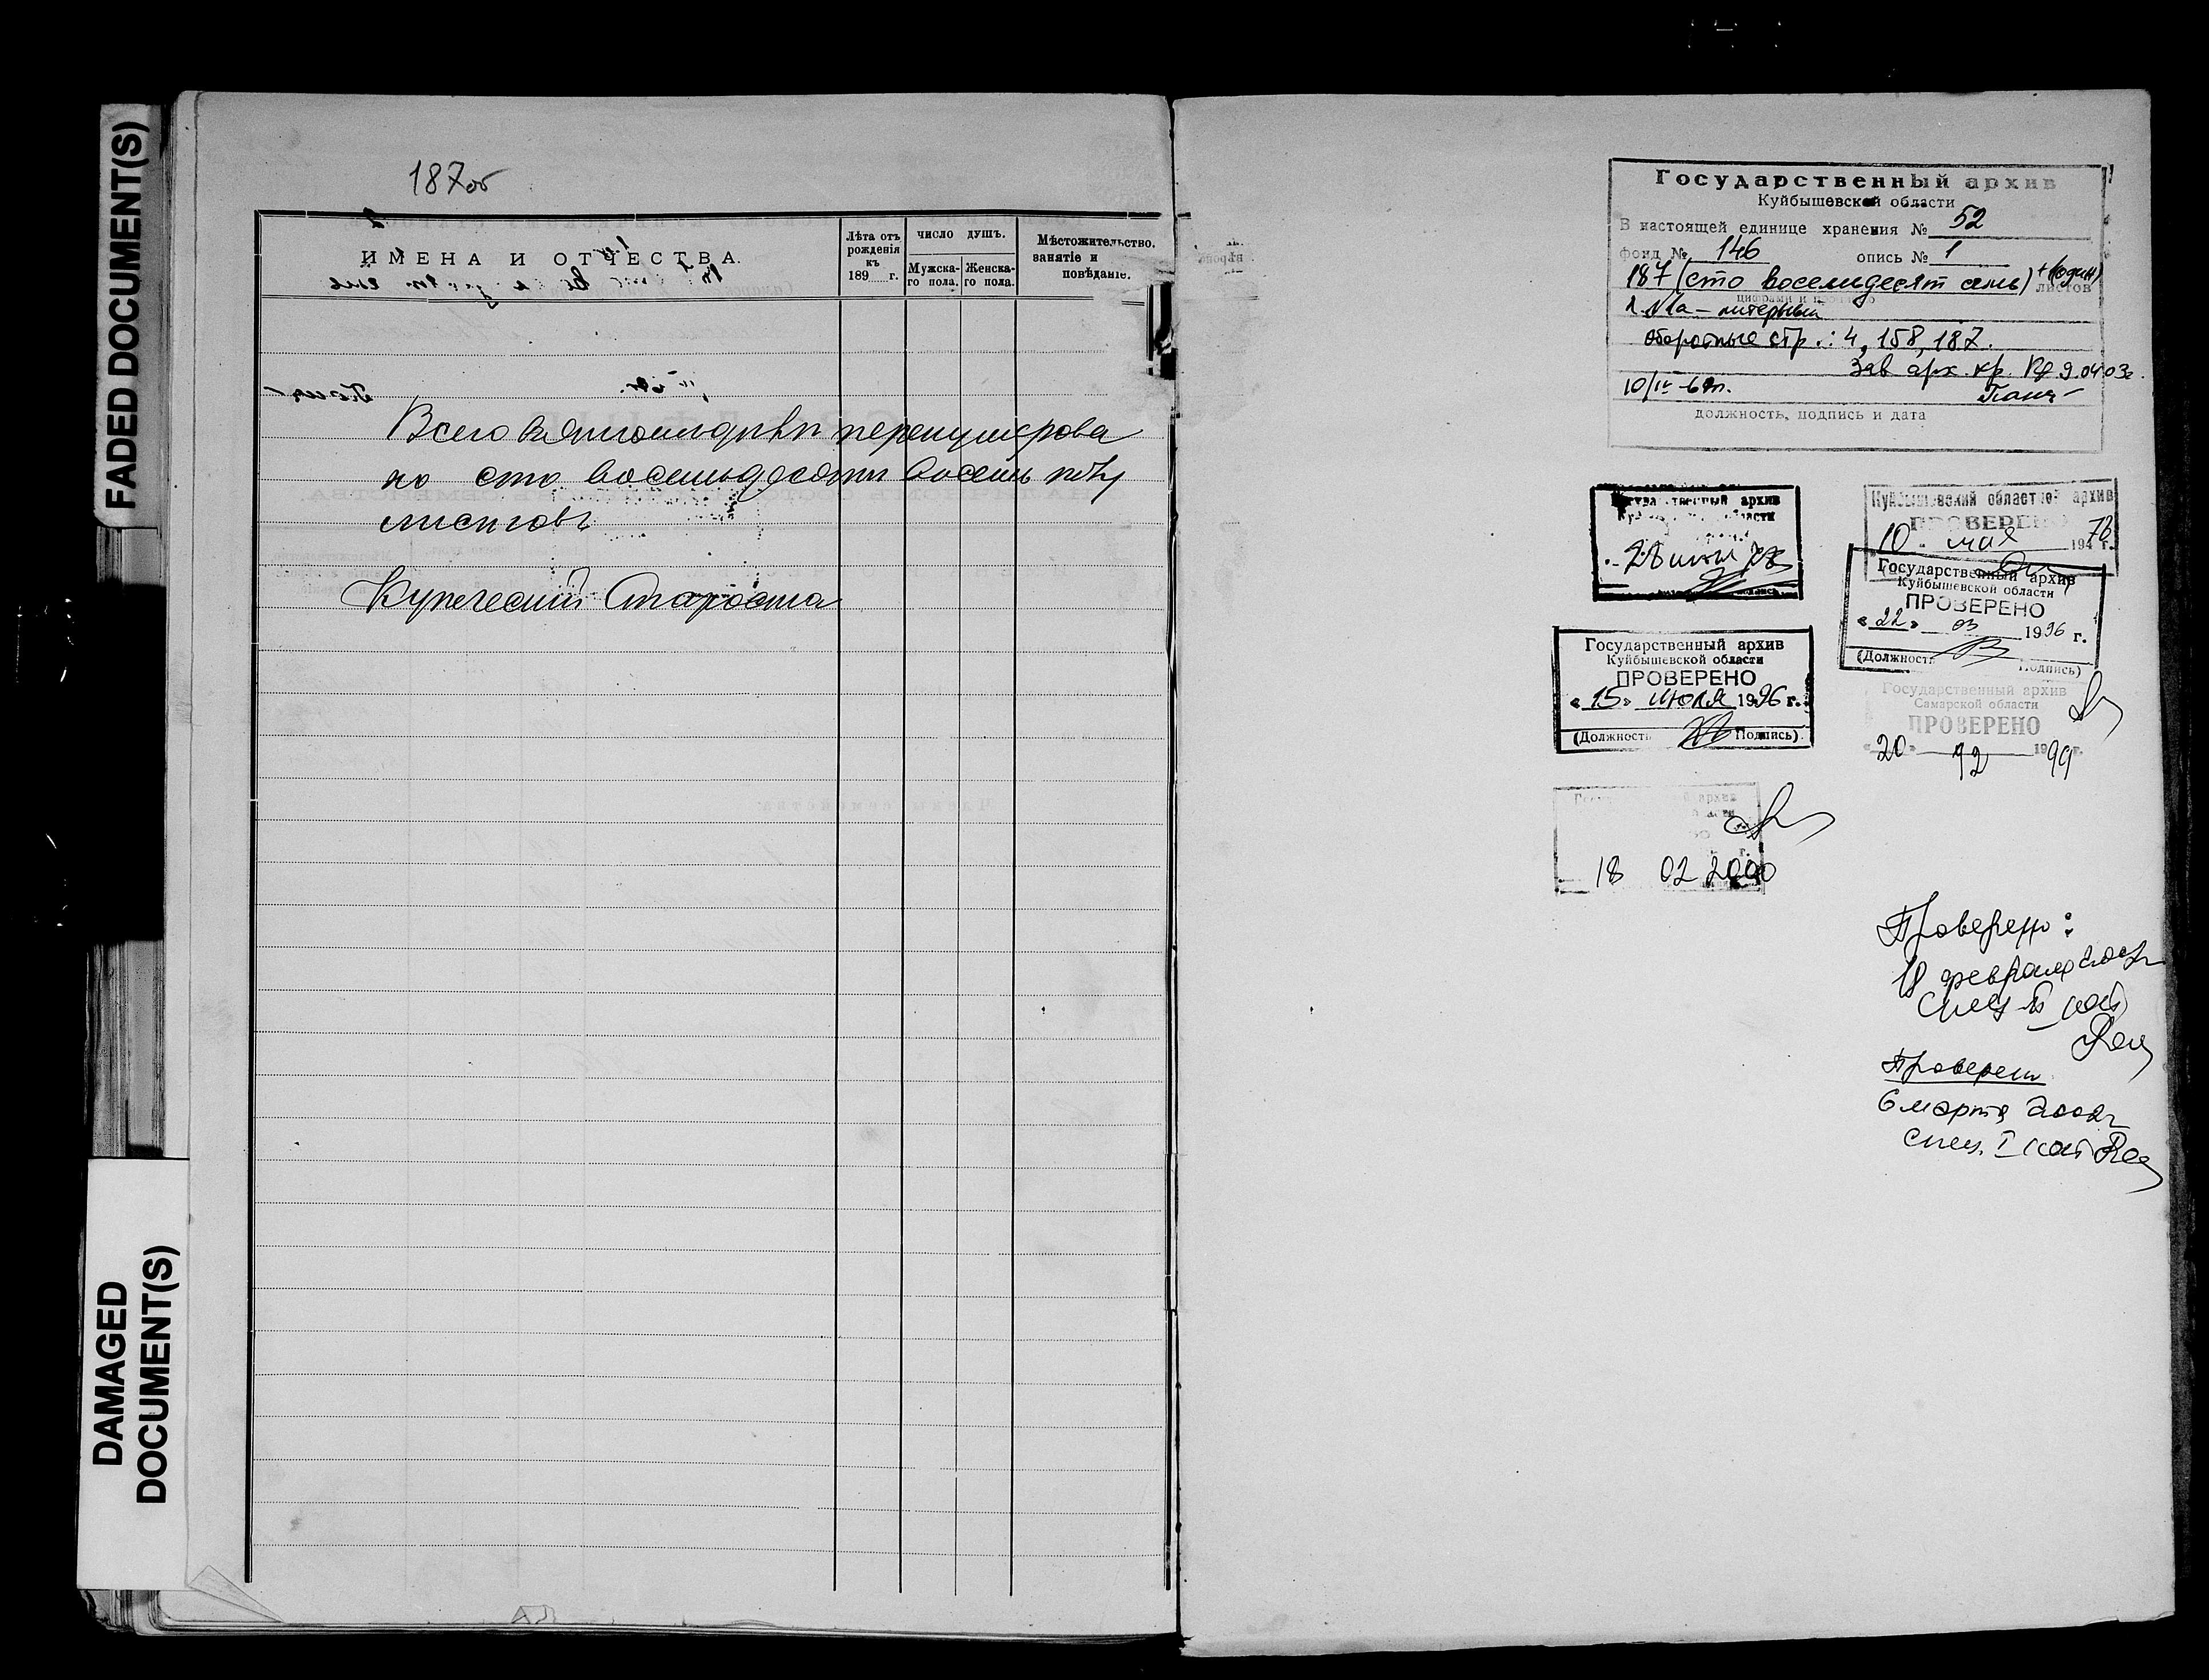 FADED DOCUMENT(S)
DAMAGED
DOCUMENT(S)
187об
ИМЕНА И ОТЧЕСТВА.
Лѣта отъ
рожденія
къ
189 г.
ЧИСЛО ДУШЪ.
Мужска-
го пола.
Женска-
го пола.
Мѣстожительство,
занятіе и
Всего
перенумерова
но сто восемьдесятъ восемь
листовъ
Купеческий Староста
Государственный архив
Куйбышевской области
В настоящей единице хранения № 52
фонд № 146 опись № 1
187 (сто восемьдесят семь) + 1(один) листов
цифрами и прописью
л. № 1а – литерный
оборотные стр.: 4, 158, 187.
Зав арх. хр. 9.04.03г.
10/IV-
должность, подпись и дата
Государственный архив
области
Куйбышевский областной архив
ПРОВЕРЕНО
10 мая 194 г.
Государственный архив
Куйбышевской области
ПРОВЕРЕНО
«22» 03 1996 г.
(Должность Подпись)
Государственный архив
Куйбышевской области
ПРОВЕРЕНО
«15» июля 1996 г.
(Должность Подпись)
Государственный архив
Самарской области
ПРОВЕРЕНО
«20» 12 1999 г.
18 02 2000
Проверено:
18 февраля
Спец. кат
Проверено
6 марта 2002г
Спец. I кат